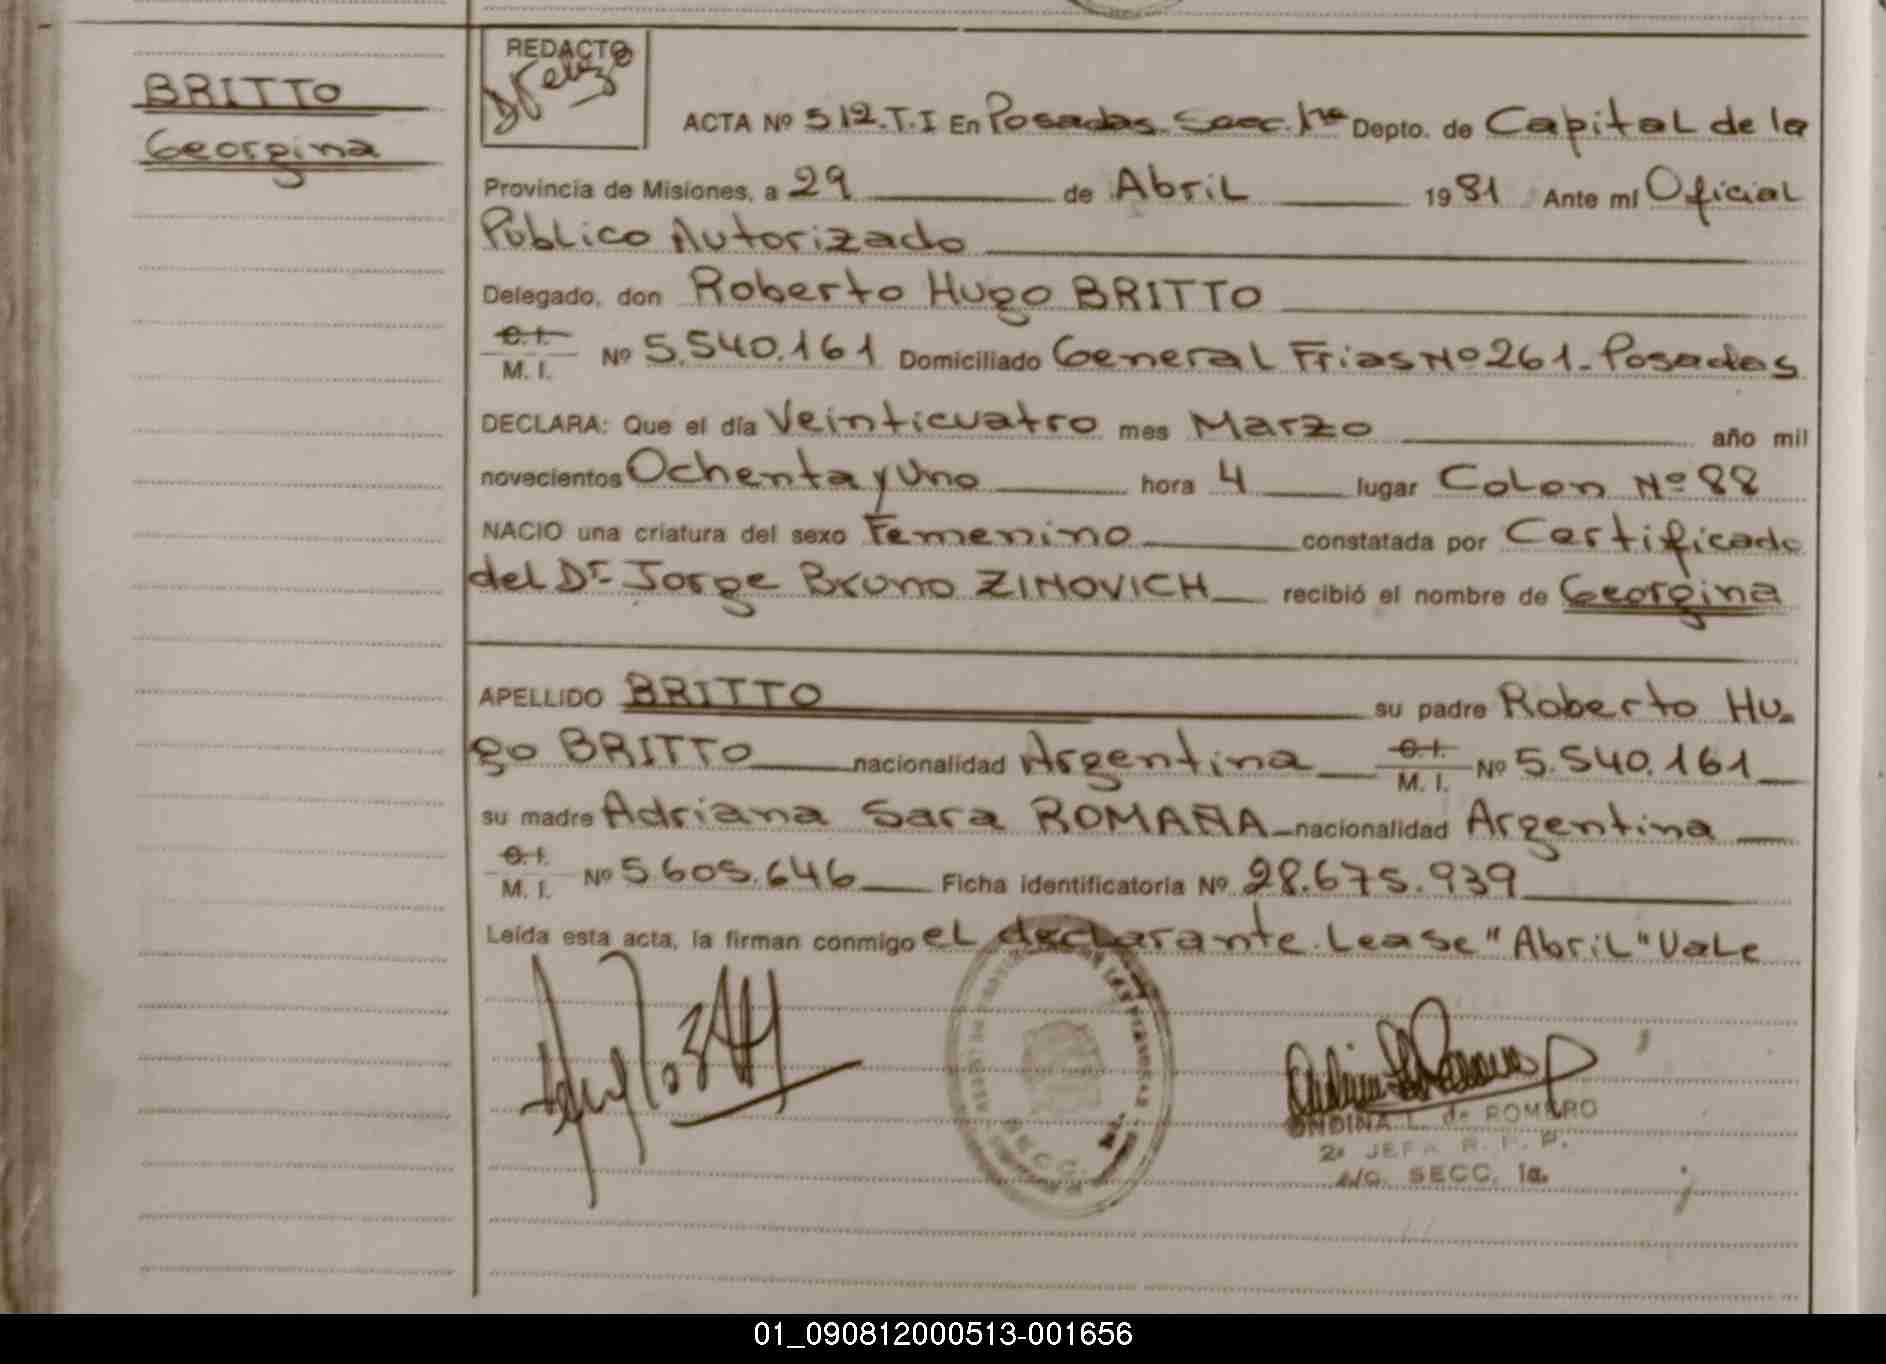 BRITTO
Georgina
REDACTO
ACTA Nº 512.T.I En Posadas Secc. 1ra Depto. de Capital de la
Provincia de Misiones, a 29 de Abril 1981 Ante mí Oficial
Público Autorizado
Delegado, don Roberto Hugo BRITTO
C.I.
M. I. Nº 5.540.161 Domiciliado General Frias Nº 261 - Posadas
DECLARA: Que el día Veinticuatro mes Marzo año mil
novecientos Ochenta y Uno hora 4 lugar Colon Nº 88
NACIO una criatura del sexo Femenino constatada por Certificado
del Dr Jorge Bruno ZINOVICH recibió el nombre de Georgina
APELLIDO BRITTO su padre Roberto Hu-
go BRITTO nacionalidad Argentina C.I.
M. I. Nº 5.540.161
su madre Adriana Sara ROMAÑA nacionalidad Argentina
C.I.
M. I. Nº 5.605.646 Ficha identificatoria Nº 28.675.939
Leída esta acta, la firman conmigo el declarante. Lease "Abril" Vale
ONDINA L. de ROMERO
2ª JEFA R. P. P.
A/C. SECC. 1a.
01_090812000513-001656